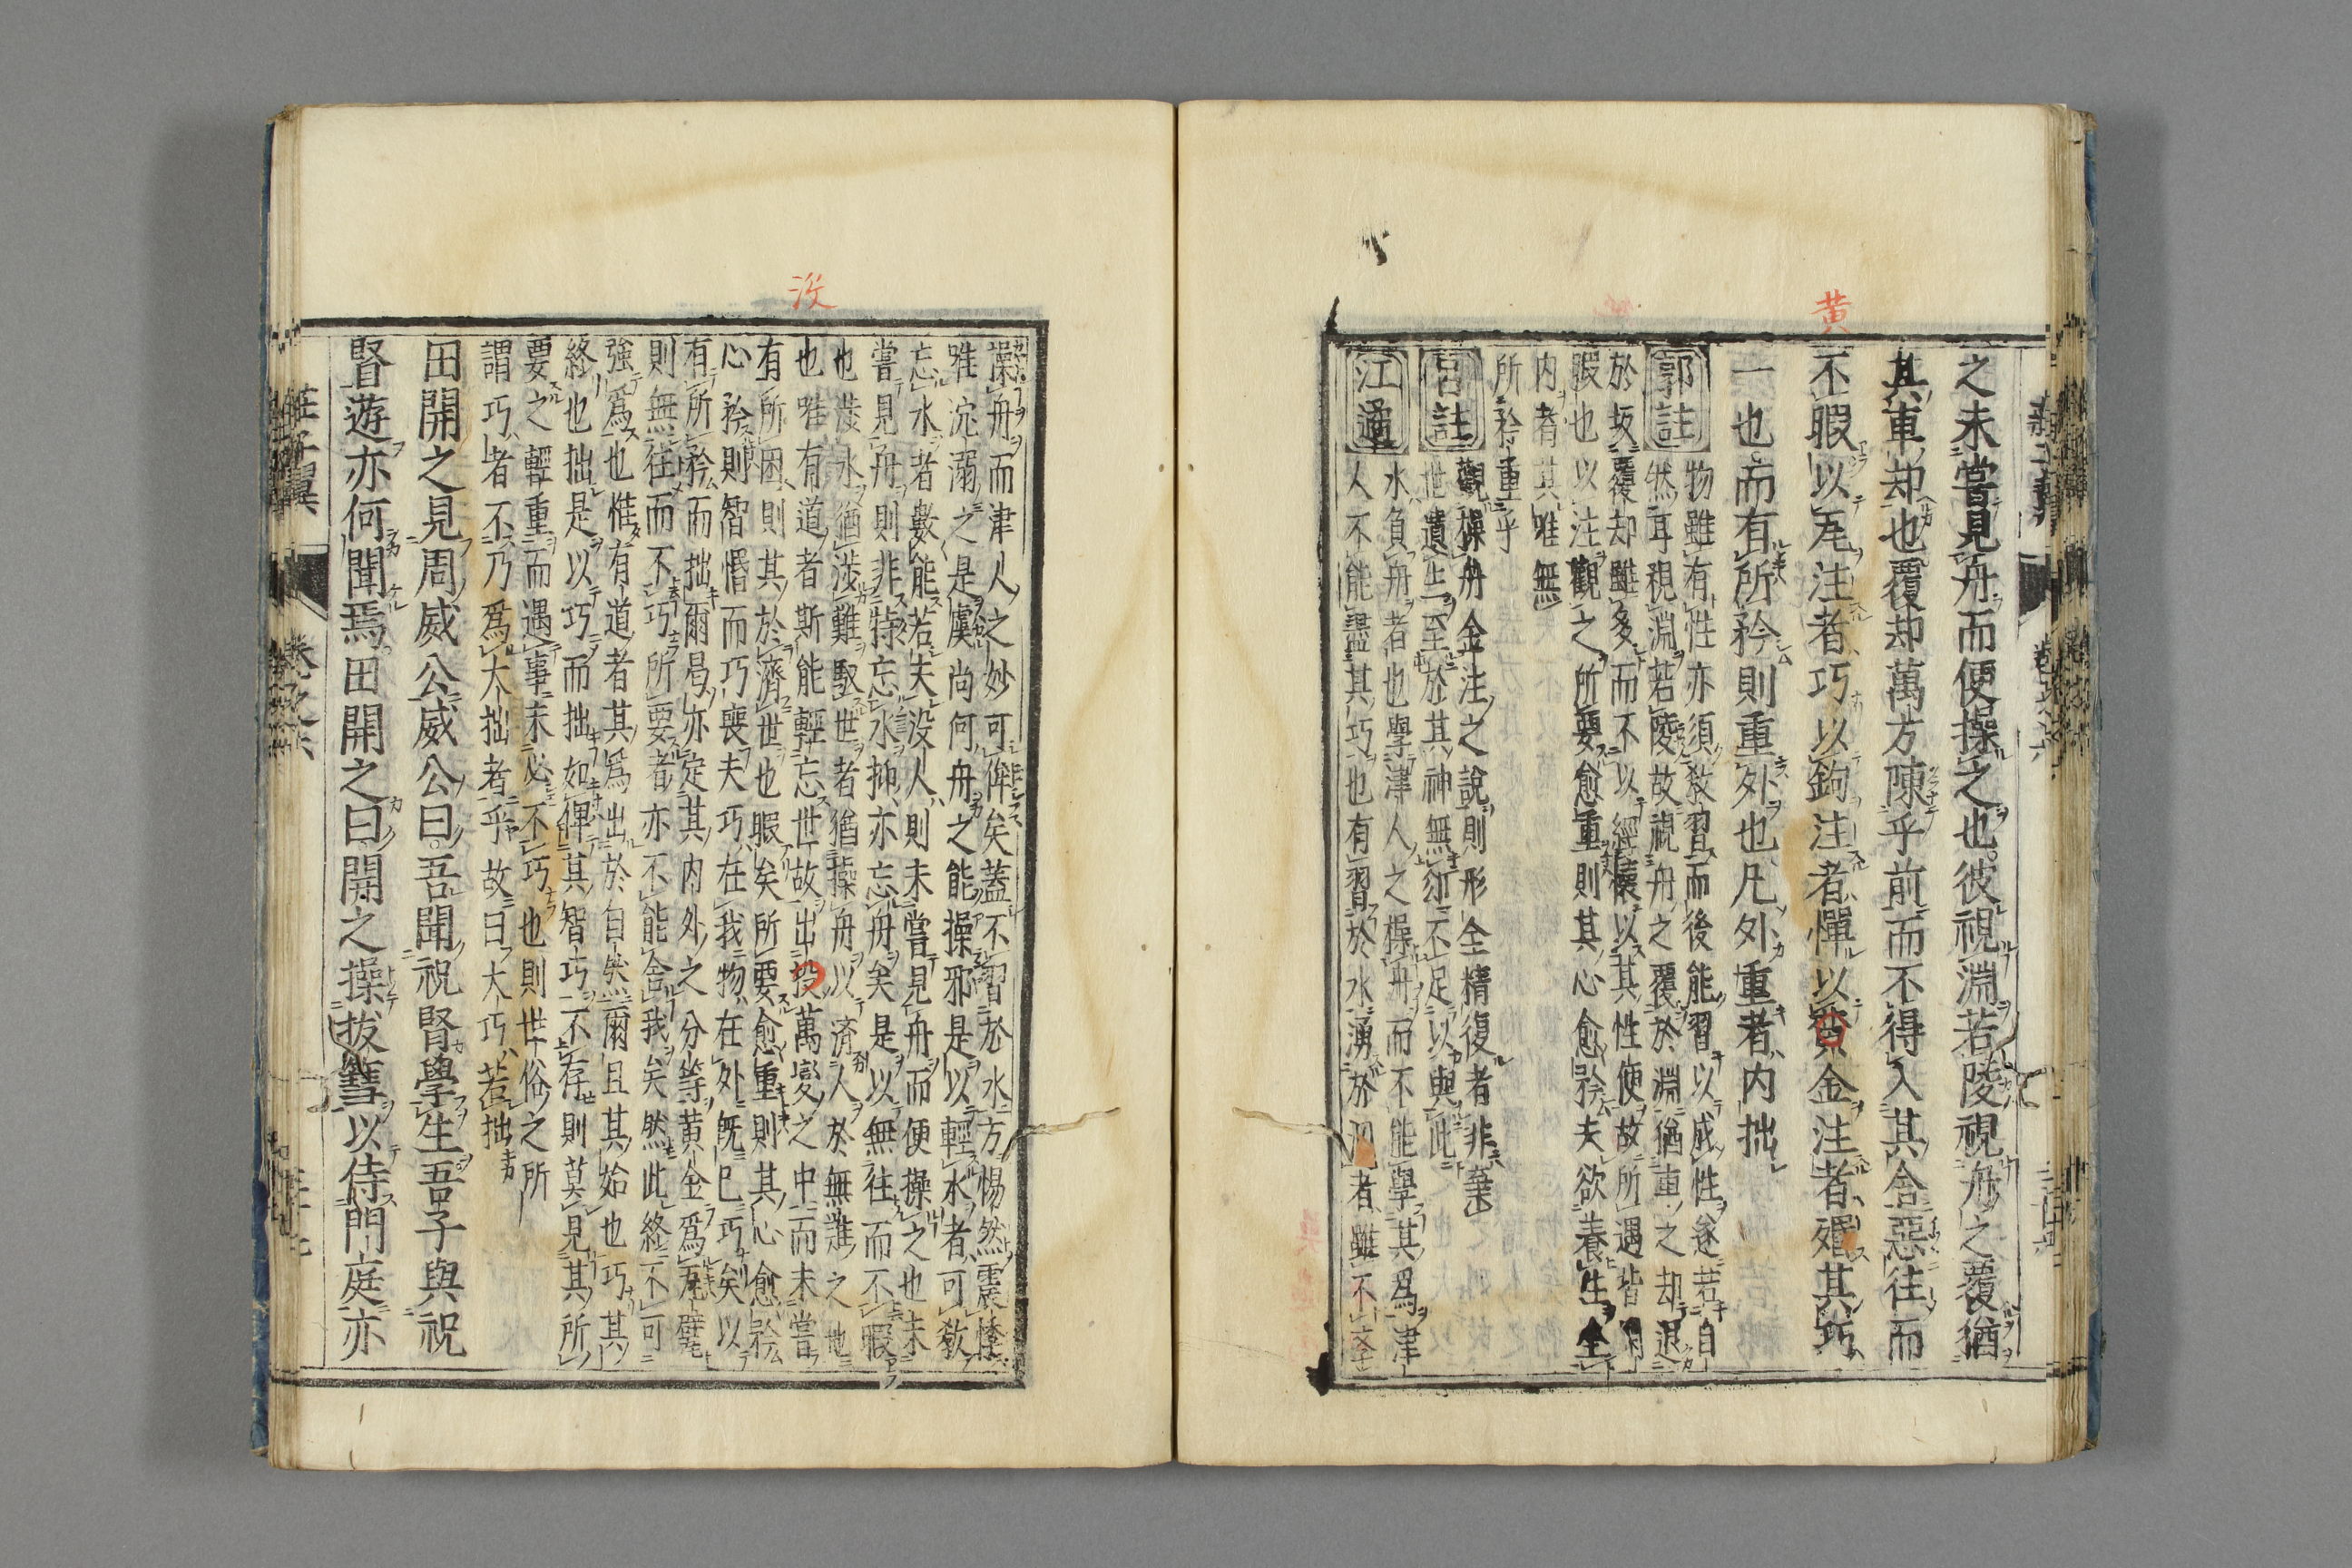 黄
之未嘗見舟而便操之也。彼視淵若陵視舟之覆猶
其車却也覆却萬方陳乎前而不得入其舍惡往而
不暇以瓦注者巧以鉤注者憚以黄金注者殙其巧
一也而有所矜則重外也凡外重者内拙
郭註
物雖有性亦須教習而後能習以成性遂若自
然耳視淵若陵故視舟之覆於淵猶車之却退
於坂覆却雖多而不以經懷以其性便故所遇皆閒
暇也以注觀之所要愈重則其心愈矜夫欲養生全
内者其唯無
所矜重乎
呂註
觀操舟金注之說則形全精復者非棄
世遺生至於其神無郤不足以與此
江遹
水負舟者也學津人之操舟而不能學其爲津
人不能盡其巧也有習於水湧於泅者雖不
操舟而津人之妙可侔矣蓋不習於水方惕然震慄
唯沱溺之是虞尚何舟之能操邪是以輕水者可教
忘水者數能若夫没人則未嘗見舟而便操之也未
嘗見舟則非特忘水抑亦忘舟矣是以無往而不暇
也涉水猶涉難馭世者猶操舟以濟人於無難之地
也唯有道者斯能輕忘世故出投萬變之中而未嘗
有所困則其於濟世也暇矣所要愈重則其心愈矜
心矜則智惛而巧喪夫巧在我物在外既已巧矣以
有所矜而拙爾曷亦定其内外之分等黄金爲瓦甓
則無往而不巧所要者亦不能舍我矣然此終不可
強爲也惟有道者其爲出於自然爾且其始也巧其
終也拙是以巧而拙如俾其智巧不存則莫見其所
要之輕重而遇事未必不巧也則世俗之所
謂巧者不乃爲大拙者乎故曰大巧若拙
田開之見周威公威公曰。吾聞祝腎學生吾子與祝
腎遊亦何聞焉。田開之曰開之操拔篲以侍門庭亦
莊子翼
卷之六